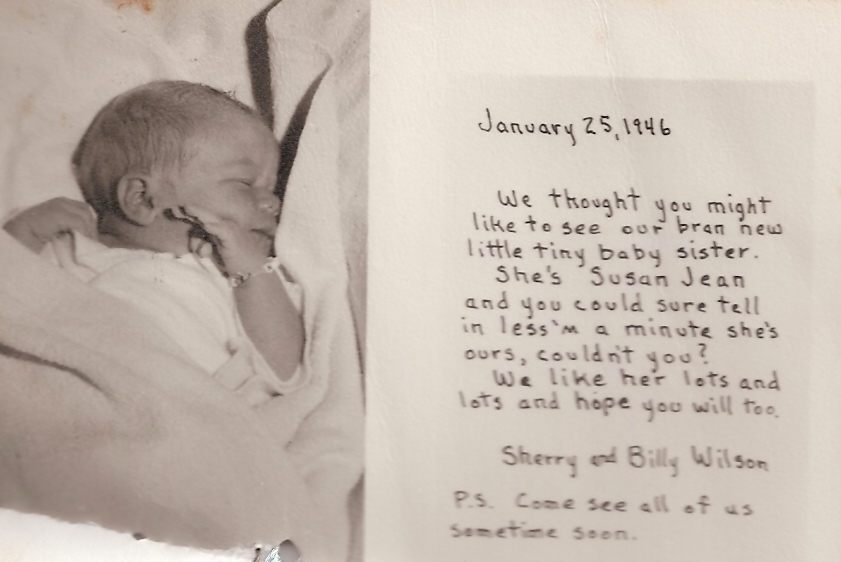 January 25, 1946
We thought you might
like to see our bran new
little tiny baby sister.
She's Susan Jean
and you could sure tell
in less'm a minute she's
ours, couldn't you?
We like her lots and
lots and hope you will too.
Sherry and Billy Wilson
P.S. Come see all of us
sometime soon.